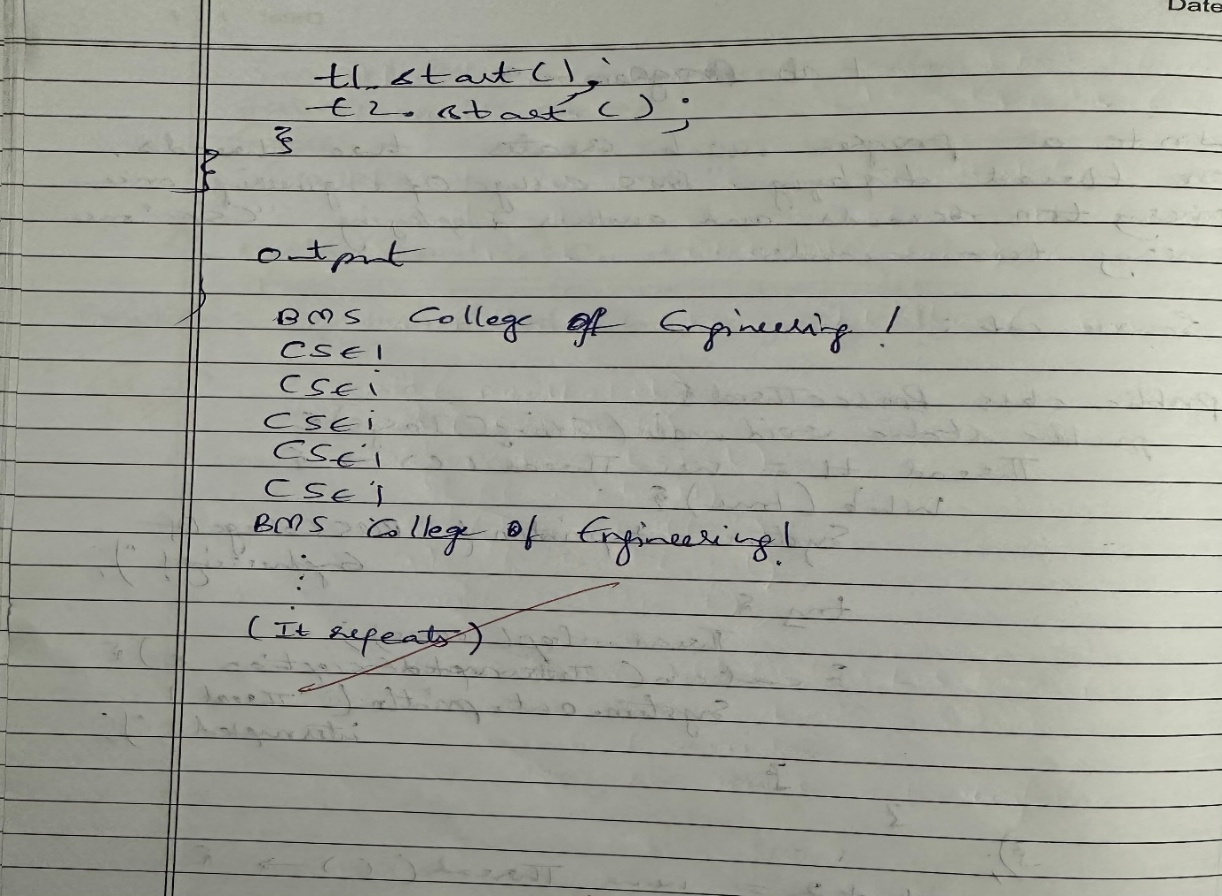 Date
t1.start();
t2.start();
}
}
output
BMS College of Engineering!
CSE!
CSE!
CSE!
CSE!
CSE!
BMS College of Engineering!
:
(It repeats)